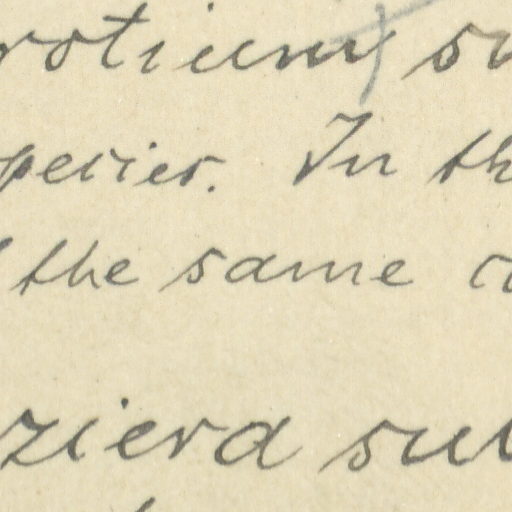 rotium su
pecies. In th
the same co
zierd sul